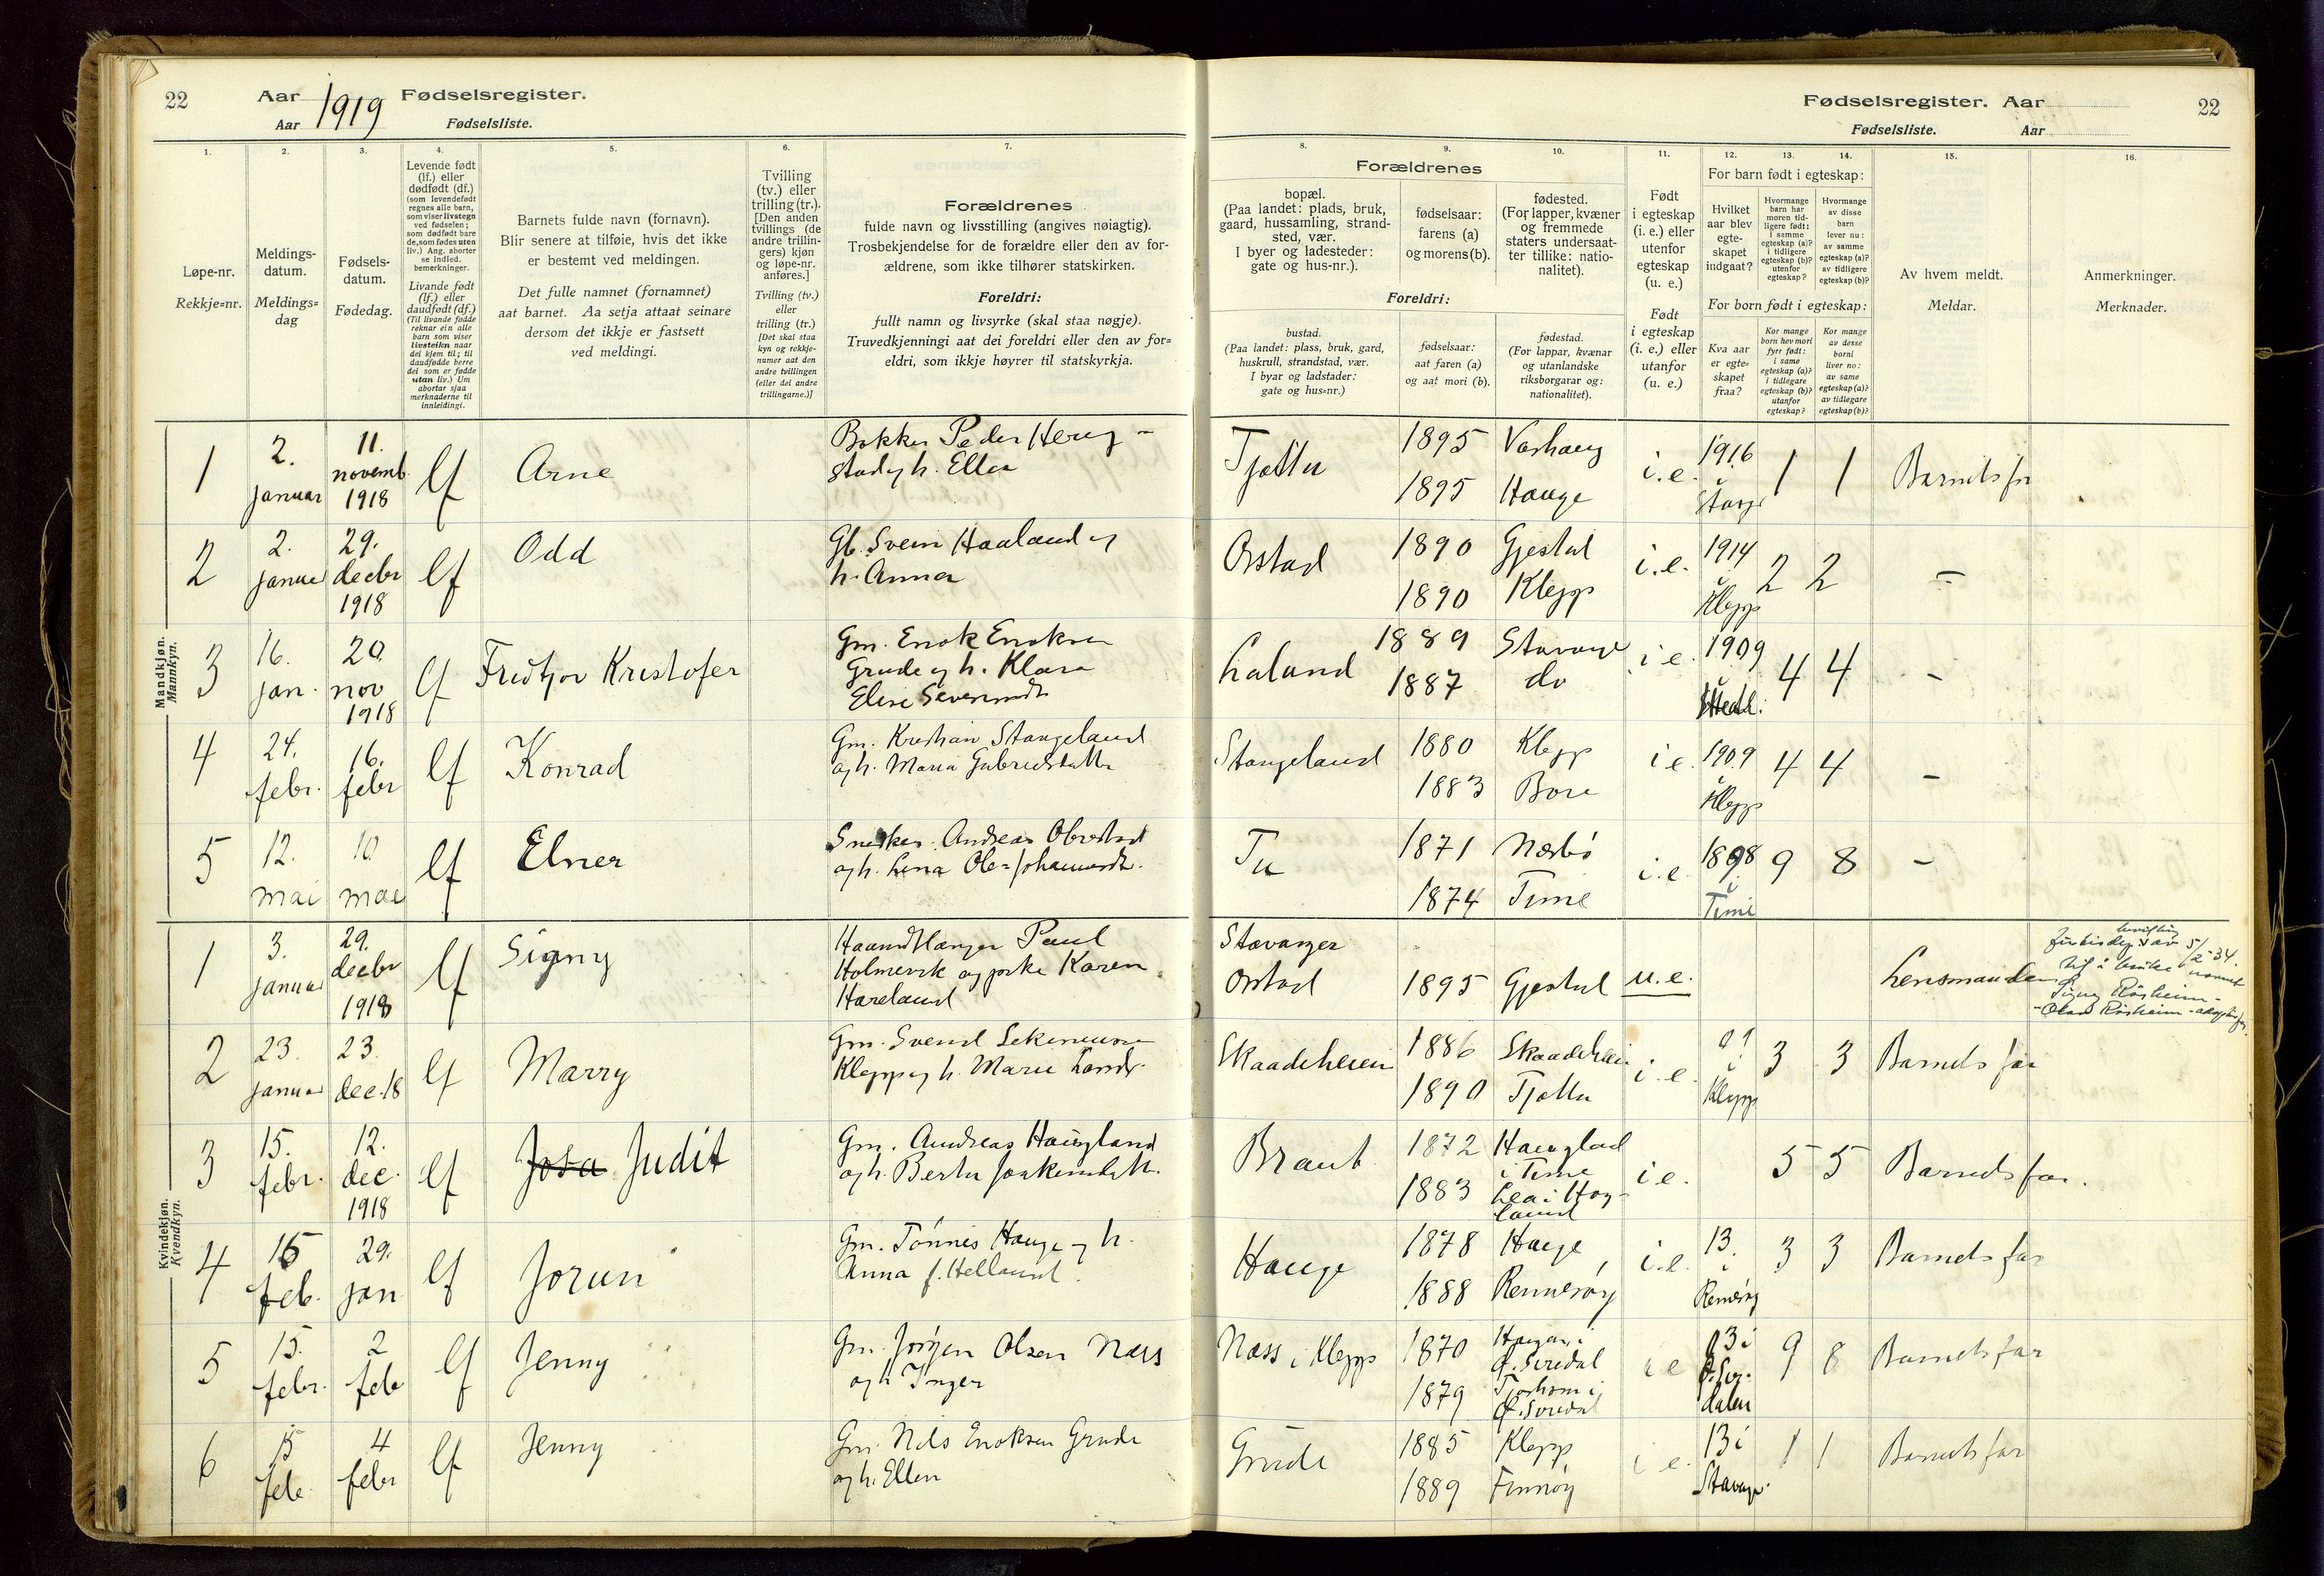 22 Aar 1919 Fødselsregister.
Aar Fødselsliste.
Fødselsregister. Aar 22
Fødselsliste. Aar
1. 2. 3. 4. 5. 6. 7. 8. 9. 10. 11. 12. 13. 14. 15. 16.
Løpe-nr.
Rekkje=nr.
Meldings-
datum.
Meldings=
dag
Fødsels-
datum.
Fødedag.
Levende født
(lf.) eller
dødfødt (df.)
(som levendefødt
regnes alle barn,
som viser livstegn
ved fødselen;
som dødfødt bare
de, som fødes uten
liv.) Ang. aborter
se indled.
bemerkninger.
Livande født
(lf.) eller
daudfødt (df.)
(Til livande fødde
reknar ein alle
barn som viser
livsteikn naar
dei kjem til; til
daudfødde berre
dei som er fødde
utan liv.) Um
abortar sjaa
merknaderne til
innleidingi.
Barnets fulde navn (fornavn).
Blir senere at tilføie, hvis det ikke
er bestemt ved meldingen.
Det fulle namnet (fornamnet)
aat barnet. Aa setja attaat seinare
dersom det ikkje er fastsett
ved meldingi.
Tvilling
(tv.) eller
trilling (tr.).
[Den anden
tvillings (de
andre trillin-
gers) kjøn
og løpe-nr.
anføres.]
Tvilling (tv.)
eller
trilling (tr.)
[Det skal staa
kyn og rekkje-
numer aat den
andre tvillingen
(eller dei andre
trillingarne.)]
Forældrenes
fulde navn og livsstilling (angives nøiagtig).
Trosbekjendelse for de forældre eller den av for-
ældrene, som ikke tilhører statskirken.
Foreldri:
fullt namn og livsyrke (skal staa nøgje).
Truvedkjenningi aat dei foreldri eller den av for=
eldri, som ikkje høyrer til statskyrkja.
Forældrenes
bopæl.
(Paa landet: plads, bruk,
gaard, hussamling, strand-
sted, vær.
I byer og ladesteder:
gate og hus-nr.).
fødselsaar:
farens (a)
og morens (b).
fødested.
(For lapper, kvæner
og fremmede
staters undersaat-
ter tillike: natio-
nalitet).
Foreldri:
bustad.
(Paa landet: plass, bruk, gard,
huskrull, strandstad, vær.
I byar og ladstader:
gate og hus=nr.)
fødselsaar:
aat faren (a)
og aat mori (b).
fødestad.
(For lappar, kvænar
og utanlandske
riksborgarar og:
nationalitet).
Født
i egteskap
(i. e.) eller
utenfor
egteskap
(u. e.)
Født
i egteskap
(i. e.) eller
utanfor
(u. e.)
For barn født i egteskap:
Hvilket
aar blev
egte-
skapet
indgaat?
Hvormange
barn har
moren tid-
ligere født:
i samme
egteskap (a)?
i tidligere
egteskap (b)?
utenfor
egteskap?
Hvormange
av disse
barn
lever nu:
av samme
egteskap (a)?
av tidligere
egteskap (b)?
For born født i egteskap:
Kva aar
er egte-
skapet
fraa?
Kor mange
born hev mori
fyrr født:
i same
egteskap (a)?
i tidlegare
egteskap (b)?
utanfor
egteskap?
Kor mange
av desse
borni
liver no:
av same
egteskap (a)?
av tidlegare
egteskap (b)?
Av hvem meldt.
Meldar.
Anmerkninger.
Merknader.
Mandkjøn.
Mannkyn.
1 2. januar 11. novemb. 1918 lf Arne
Peder
og h. Ellen
Tjøtta 1895 Varhaug i.e. 1916 i 1 1 Barnets far
1895 Hauge
2 2. januar 29. decbr 1918 lf Odd
Gb. Svein Haaland og
h. Anna
Orstad 1890 Gjestal i.e. 1914 i Klepp 2 2 –
1890 Klepp
3 16. jan. 20 nov 1918 lf Fredtjov Kristofer
Gm. Enok Enoksen
Grude og h. Klara
Elise
Laland 1889 i e. 1909 4 4 –
1887 do
4 24. febr. 16. febr lf Konrad
Gm. Kristian Stangeland
og h. Maria
Stangeland 1880 Klepp i e. 1909 i Klepp 4 4 –
1883 Bore
5 12. mai 10 mai lf Elner
Snedker Andreas Obrestad
og h. Lena
Tu 1871 Nærbø i.e. 1898 i Time 9 8 –
1874 Time
Kvindekjøn.
Kvendkyn.
1 3. januar 29. decbr 1918 lf Signy
Haandlanger Paul
Holmevik og pike Karen
Hareland
Stavanger
Orstad 1895 Gjestal u.e. Lensmanden
2 23. januar 23. dec. 18 lf Marry
Gm. Svend
Klepp og h. Marie
Skaadeheien 1886 i.e. i Klepp 3 3 Barnets far
1890 Tjøtta
3 15. febr. 12. dec. 1918 lf Josa Judit
Gm. Andreas Haugland
og h. Berta
Braut 1872 i Time i e. 5 5 Barnets far.
1883
4 15 feb. 29. jan lf Jorun
Gm. Tønnes Hauge og h.
Anna f. Helland.
Hauge 1878 Hauge i.e. 13. i Rennesøy 3 3 Barnets far
1888 Rennesøy
5 15. febr. 2 feb lf Jenny
Gm. Jørgen Olsen Næss
og h Inger
Næss i Klepp 1870 i e 03 i 9 8 Barnets far
1879
6 15 feb. 4 febr lf Jenny
Gm. Nils Enoksen Grude
og h. Ellen
Grude 1885 Klepp i e. 13 i 1 1 Barnets far
1889 Finnøy